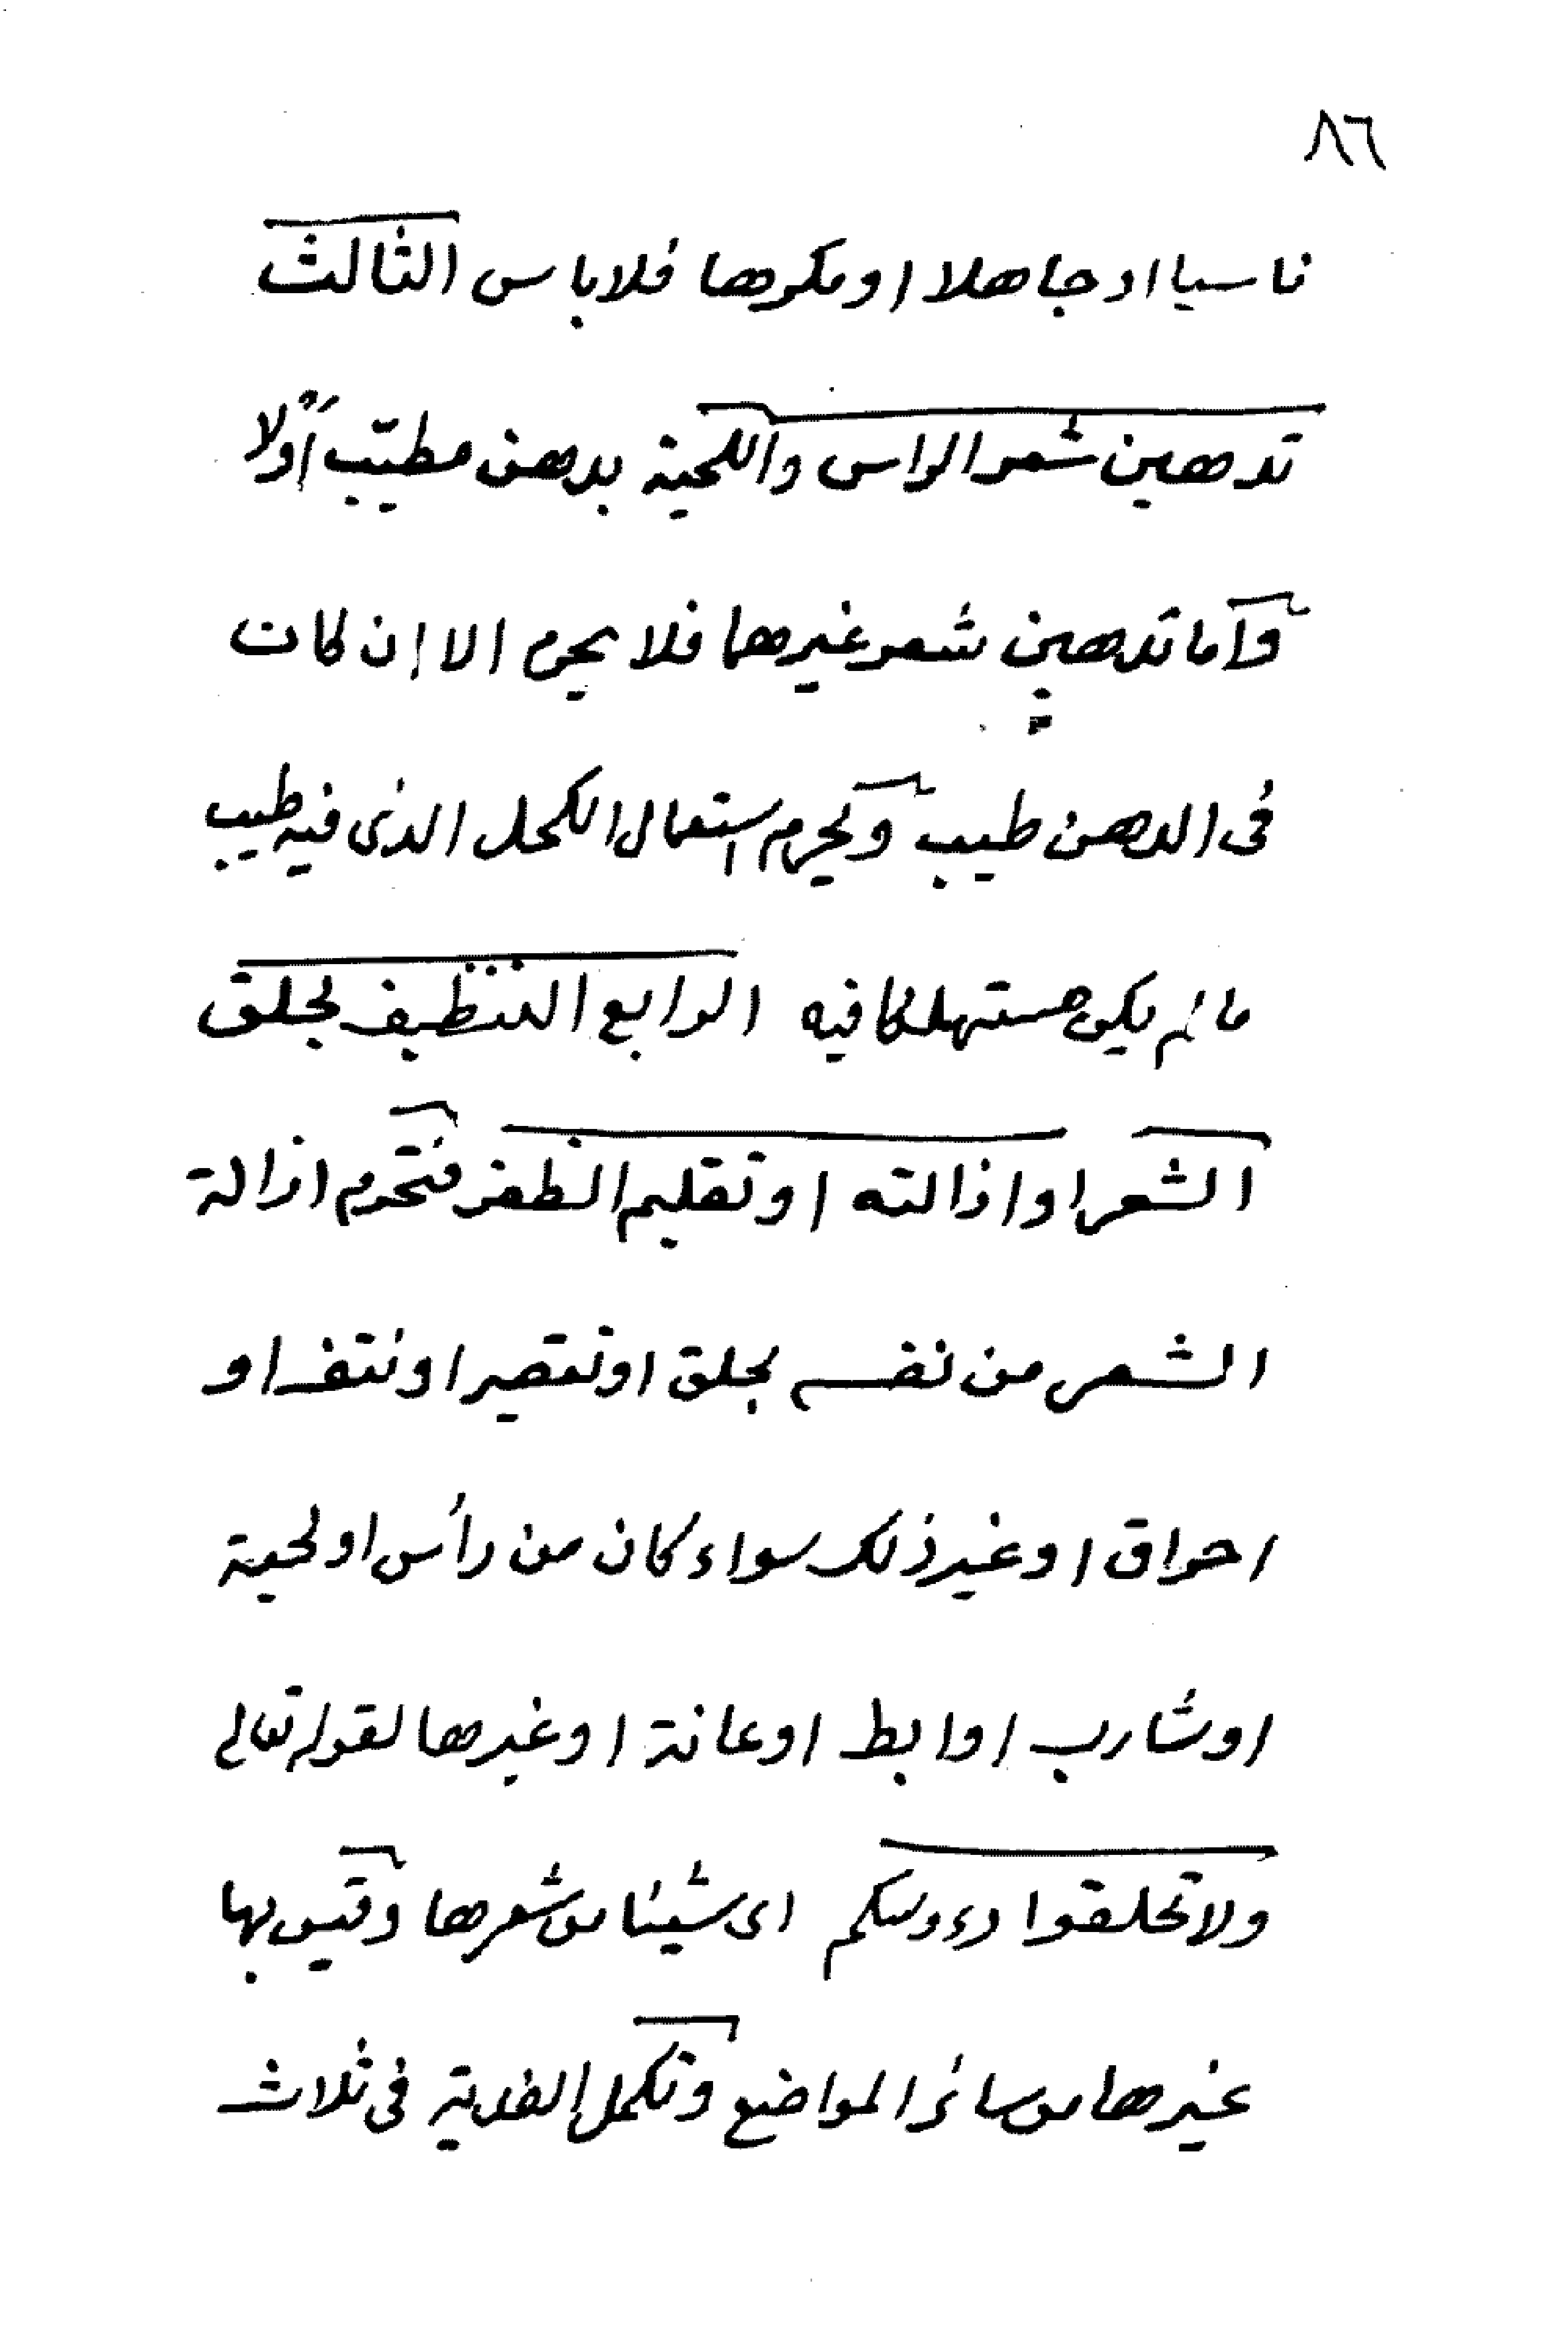 ٨٦
ناسيا او جاهلا او مكرها فلا باس الثالث
تدهين شعر الراس واللحية بدهن مطيّب أوْلا
وأما تدهين شعر غيرهما فلا يحرم الا ان كان
فى الدهن طيب ويحرم استعمال الكحل الذى فيه طيب
ما لم يكن مستهلكا فيه الرابع التنظيف بحلق
الشعر او ازالته او تقليم الظفر فتحرم ازالة
الشعر من نفسه بحلق او تقصير او نتف او
احراق او غير ذلك سواء كان من رأس او لحية
او شارب او ابط او عانة او غيرها لقوله تعالى
ولا تحلقوا رءوسكم اى شيئا من شعرها وقيس بها
غيرها من سائر المواضع وتكمل الفدية فى ثلاث